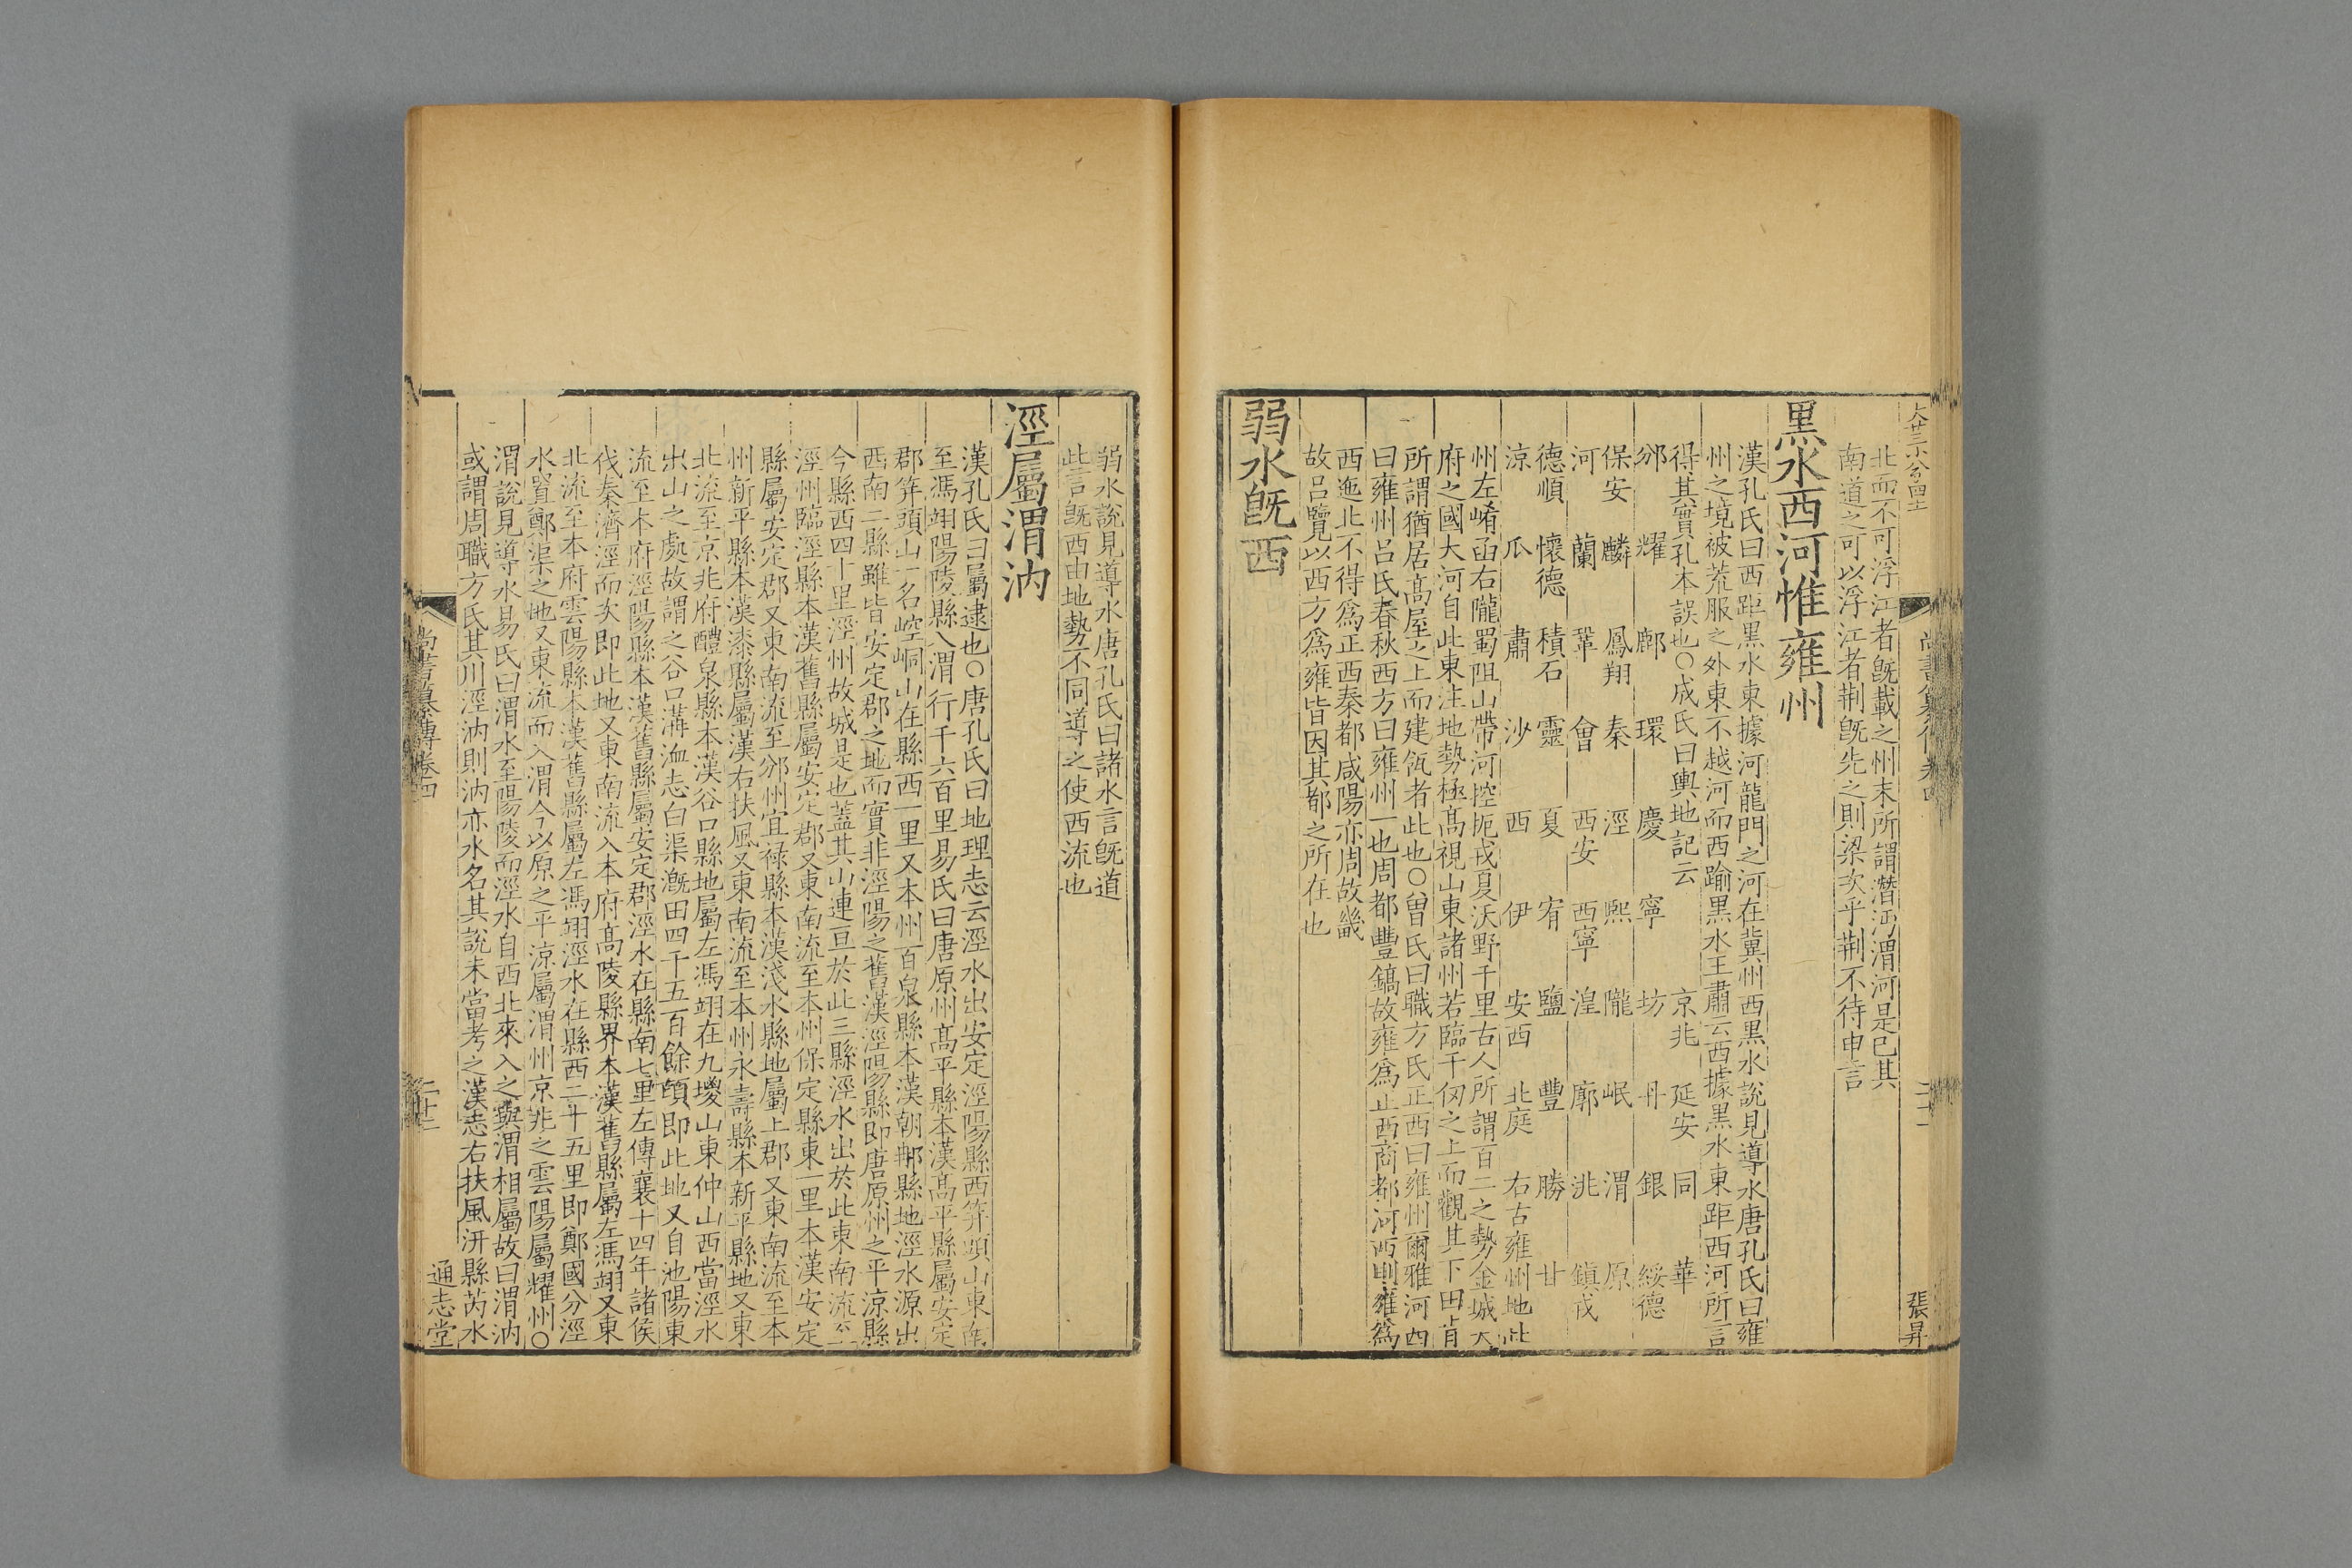 大廿三小八分四十
北而不可浮江者旣載之州末所謂潛沔渭河是已其
南道之可以浮江者荆旣先之則梁次乎荆不待申言
黑水西河惟雍州
漢孔氏曰西距黑水東據河龍門之河在冀州西黑水說見導水唐孔氏曰雍
州之境被荒服之外東不越河而西踰黑水王肅云西據黑水東距西河所言
得其實孔本誤也○成氏曰輿地記云 京兆 延安 同 華
邠 耀 鄜 環 慶 寧 坊 丹 銀 綏德
保安 麟 鳳翔 秦 涇 熙 隴 岷 渭 原
河 蘭 鞏 會 西安 西寧 湟 廓 洮 鎮戎
德順 懷德 積石 靈 夏 宥 鹽 豐 勝 甘
涼 瓜 肅 沙 西 伊 安西 北庭 右古雍州地此
州左崤函右隴蜀阻山帶河控扼戎夏沃野千里古人所謂百二之勢金城天
府之國大河自此東注地勢極高視山東諸州若臨千仞之上而觀其下田肯
所謂猶居高屋之上而建瓴者此也○曾氏曰職方氏正西曰雍州爾雅河西
曰雍州呂氏春秋西方曰雍州一也周都豐鎬故雍爲正西商都河西則雍爲
西迤北不得爲正西秦都咸陽亦周故畿
故呂覽以西方爲雍皆因其都之所在也
弱水旣西
尚書纂傳卷四
二十一
張昇
弱水說見導水唐孔氏曰諸水言旣道
此言旣西由地勢不同導之使西流也
涇屬渭汭
漢孔氏曰屬逮也○唐孔氏曰地理志云涇水出安定涇陽縣西笄頭山東南
至馮翊陽陵縣入渭行千六百里易氏曰唐原州高平縣本漢高平縣屬安定
郡笄頭山一名崆峒山在縣西一里又本州百泉縣本漢朝那縣地涇水源出
西南二縣雖皆安定郡之地而實非涇陽之舊漢涇陽縣即唐原州之平涼縣
今縣西四十里涇州故城是也蓋其山連亘於此三縣涇水出於此東南流至
涇州臨涇縣本漢舊縣屬安定郡又東南流至本州保定縣東一里本漢安定
縣屬安定郡又東南流至邠州宜祿縣本漢淺水縣地屬上郡又東南流至本
州新平縣本漢漆縣屬漢右扶風又東南流至本州永壽縣本新平縣地又東
北流至京兆府醴泉縣本漢谷口縣地屬左馮翊在九嵕山東仲山西當涇水
出山之處故謂之谷口溝洫志白渠漑田四千五百餘頃即此地又自池陽東
流至本府涇陽縣本漢舊縣屬安定郡涇水在縣南七里左傳襄十四年諸侯
伐秦濟涇而次即此地又東南流入本府高陵縣界本漢舊縣屬左馮翊又東
北流至本府雲陽縣本漢舊縣屬左馮翊涇水在縣西二十五里即鄭國分涇
水置鄭渠之地又東流而入渭今以原之平涼屬渭州京兆之雲陽屬耀州○
渭說見導水易氏曰渭水至陽陵而涇水自西北來入之與渭相屬故曰渭汭
或謂周職方氏其川涇汭則汭亦水名其說未當考之漢志右扶風汧縣芮水
尚書纂傳卷四
二十二
通志堂